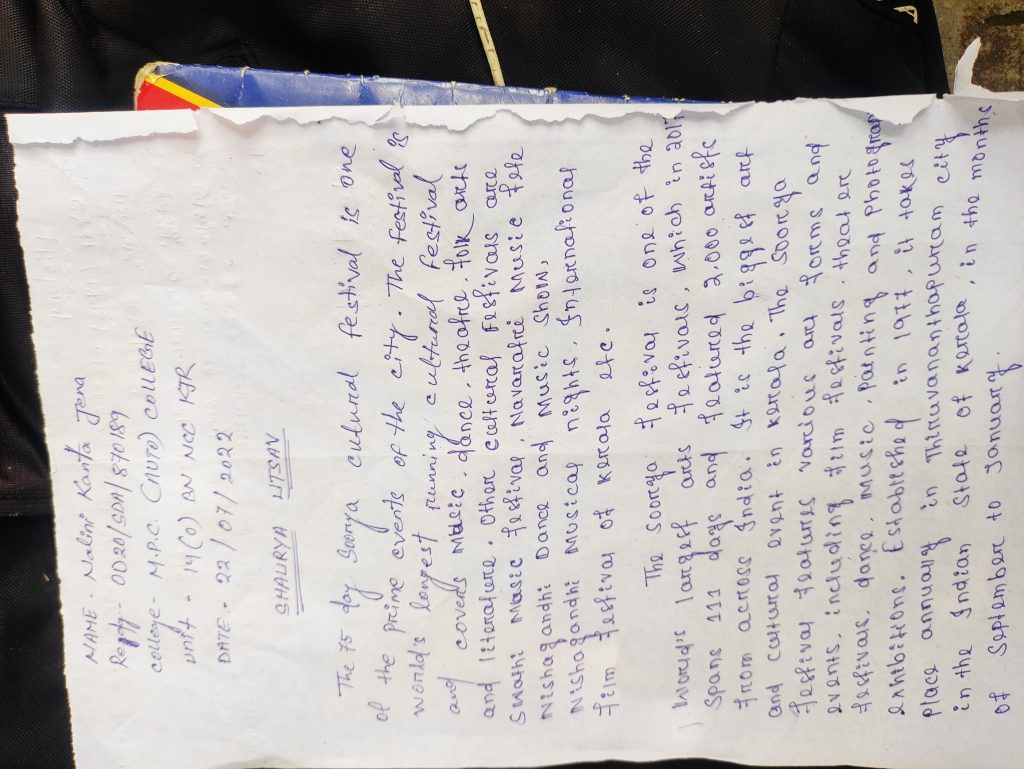 NAME - Nalini Kanta Jena
Regd - OD20/SDA/870189
college - M.P.C. (AUTO) COLLEGE
unit - 14(O) BN NCC KJR
DATE - 22/07/2022
SHAURYA UTSAV
The 75 day Soorya cutural festival is one
of the prime events of the city. The festival is
world's longest running cultural festival
and covers music, dance, theatre, folk arts
and literature. Other cultural festivals are
Swathi Music festival, Navaratre Music fete
Nishagandhi Dance and Music Show,
Nishagandhi Musical nights, International
film festival of kerala etc.
The soorya festival is one of the
World's largest arts festivals, which in 2017
Spans 111 days and featured 2,000 artists
from across India. It is the biggest art
and cultural event in kerala. The Soorya
festival features various art forms and
events, including film festivals, theater
festivals, dance, music, painting and photograp
exhibitions. Established in 1977, it takes
place annually in Thiruvananthapuram city
in the Indian State of Kerala, in the months
of September to January.